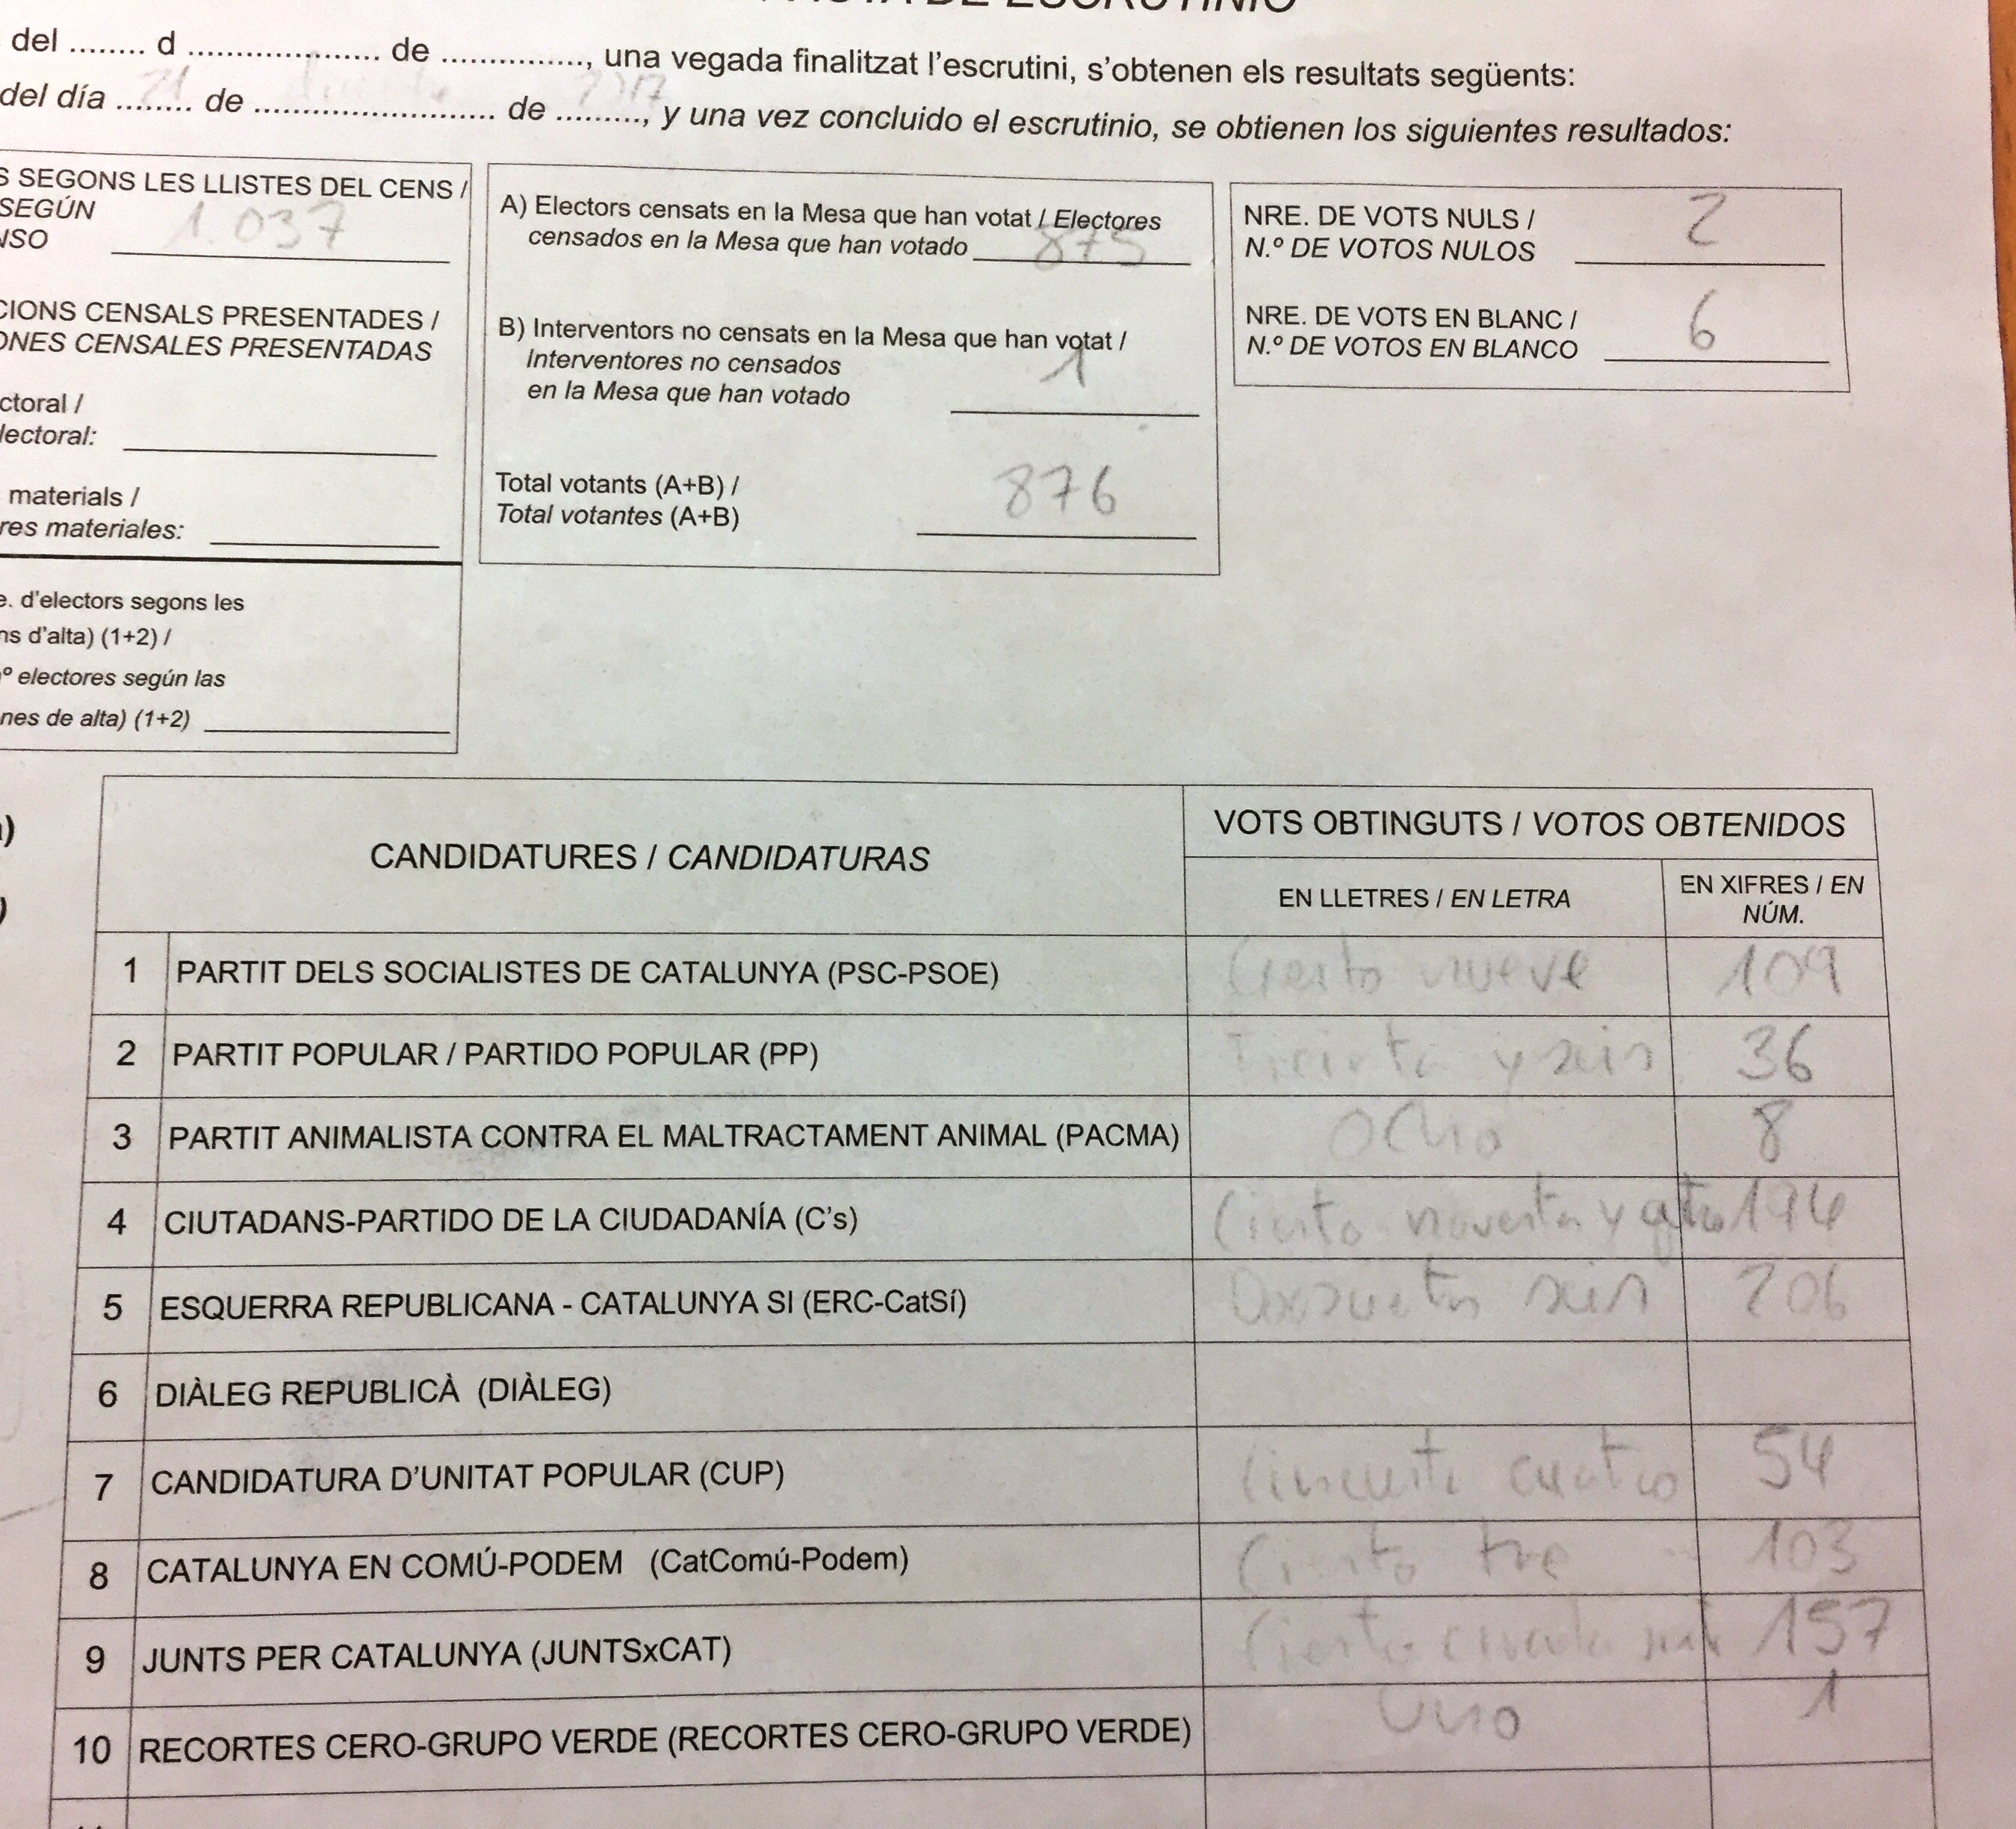 ACTA DE ESCRUTINIO
del ........ d .................... de ..............., una vegada finalitzat l'escrutini, s'obtenen els resultats següents:
del día 21 de ......................... de 2017, y una vez concluido el escrutinio, se obtienen los siguientes resultados:
S SEGONS LES LLISTES DEL CENS /
SEGÚN
NSO 1.037
CIONS CENSALS PRESENTADES /
ONES CENSALES PRESENTADAS
ctoral /
lectoral:
materials /
res materiales:
e. d'electors segons les
ns d'alta) (1+2) /
º electores según las
nes de alta) (1+2)
A) Electors censats en la Mesa que han votat / Electores
censados en la Mesa que han votado 875
B) Interventors no censats en la Mesa que han votat /
Interventores no censados
en la Mesa que han votado 1
Total votants (A+B) /
Total votantes (A+B) 876
NRE. DE VOTS NULS /
N.º DE VOTOS NULOS 2
NRE. DE VOTS EN BLANC /
N.º DE VOTOS EN BLANCO 6
CANDIDATURES / CANDIDATURAS
VOTS OBTINGUTS / VOTOS OBTENIDOS
EN LLETRES / EN LETRA
EN XIFRES / EN
NÚM.
1 PARTIT DELS SOCIALISTES DE CATALUNYA (PSC-PSOE) Ciento nueve 109
2 PARTIT POPULAR / PARTIDO POPULAR (PP) Treinta y seis 36
3 PARTIT ANIMALISTA CONTRA EL MALTRACTAMENT ANIMAL (PACMA) Ocho 8
4 CIUTADANS-PARTIDO DE LA CIUDADANÍA (C's) Ciento noventa y 194
5 ESQUERRA REPUBLICANA - CATALUNYA SI (ERC-CatSí) seis 206
6 DIÀLEG REPUBLICÀ (DIÀLEG)
7 CANDIDATURA D'UNITAT POPULAR (CUP) cuatro 54
8 CATALUNYA EN COMÚ-PODEM (CatComú-Podem) Ciento tre 103
9 JUNTS PER CATALUNYA (JUNTSxCAT) Ciento 157
10 RECORTES CERO-GRUPO VERDE (RECORTES CERO-GRUPO VERDE) Uno 1